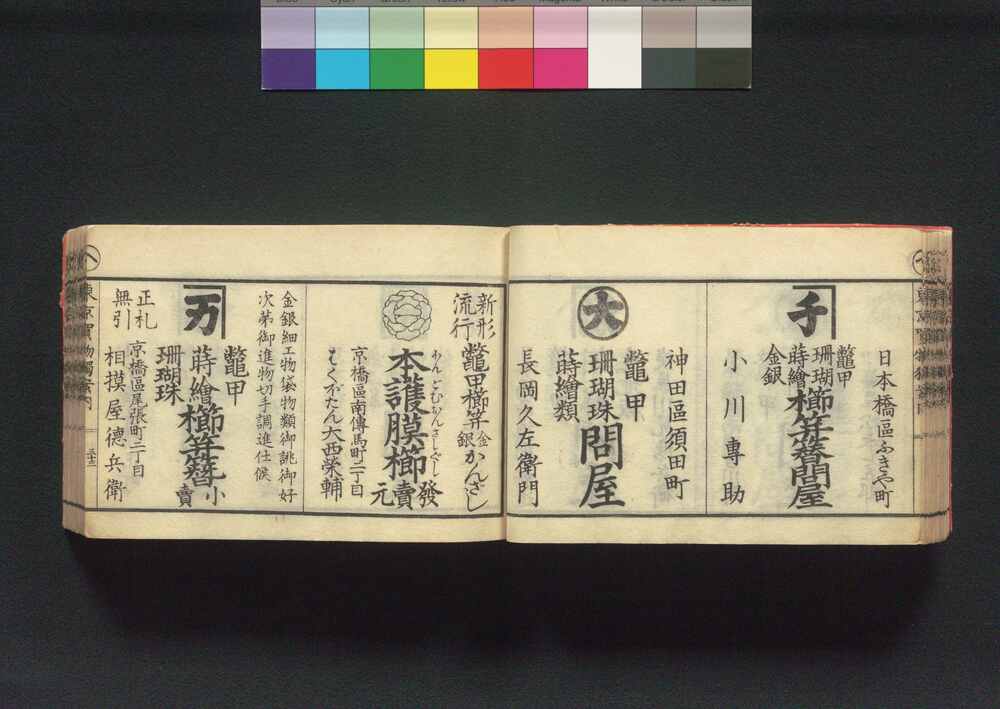 日本橋區ふきや町
千
鼈甲
珊瑚
蒔繪
金銀
櫛笄簪問屋
小川專助
神田區須田町
大
鼈甲
珊瑚珠
蒔繪類
問屋
長岡久左衛門
新形
流行
鼈甲櫛笄金銀かんざし
本護膜櫛
發賣元
京橋區南傳馬町二丁目
大西榮輔
金銀細工物袋物類御誂御好
次第御進物切手調進仕候
万
鼈甲
蒔繪
珊瑚珠
櫛笄簪
小賣
京橋區尾張町二丁目
正札
無引
相摸屋德兵衛
へ